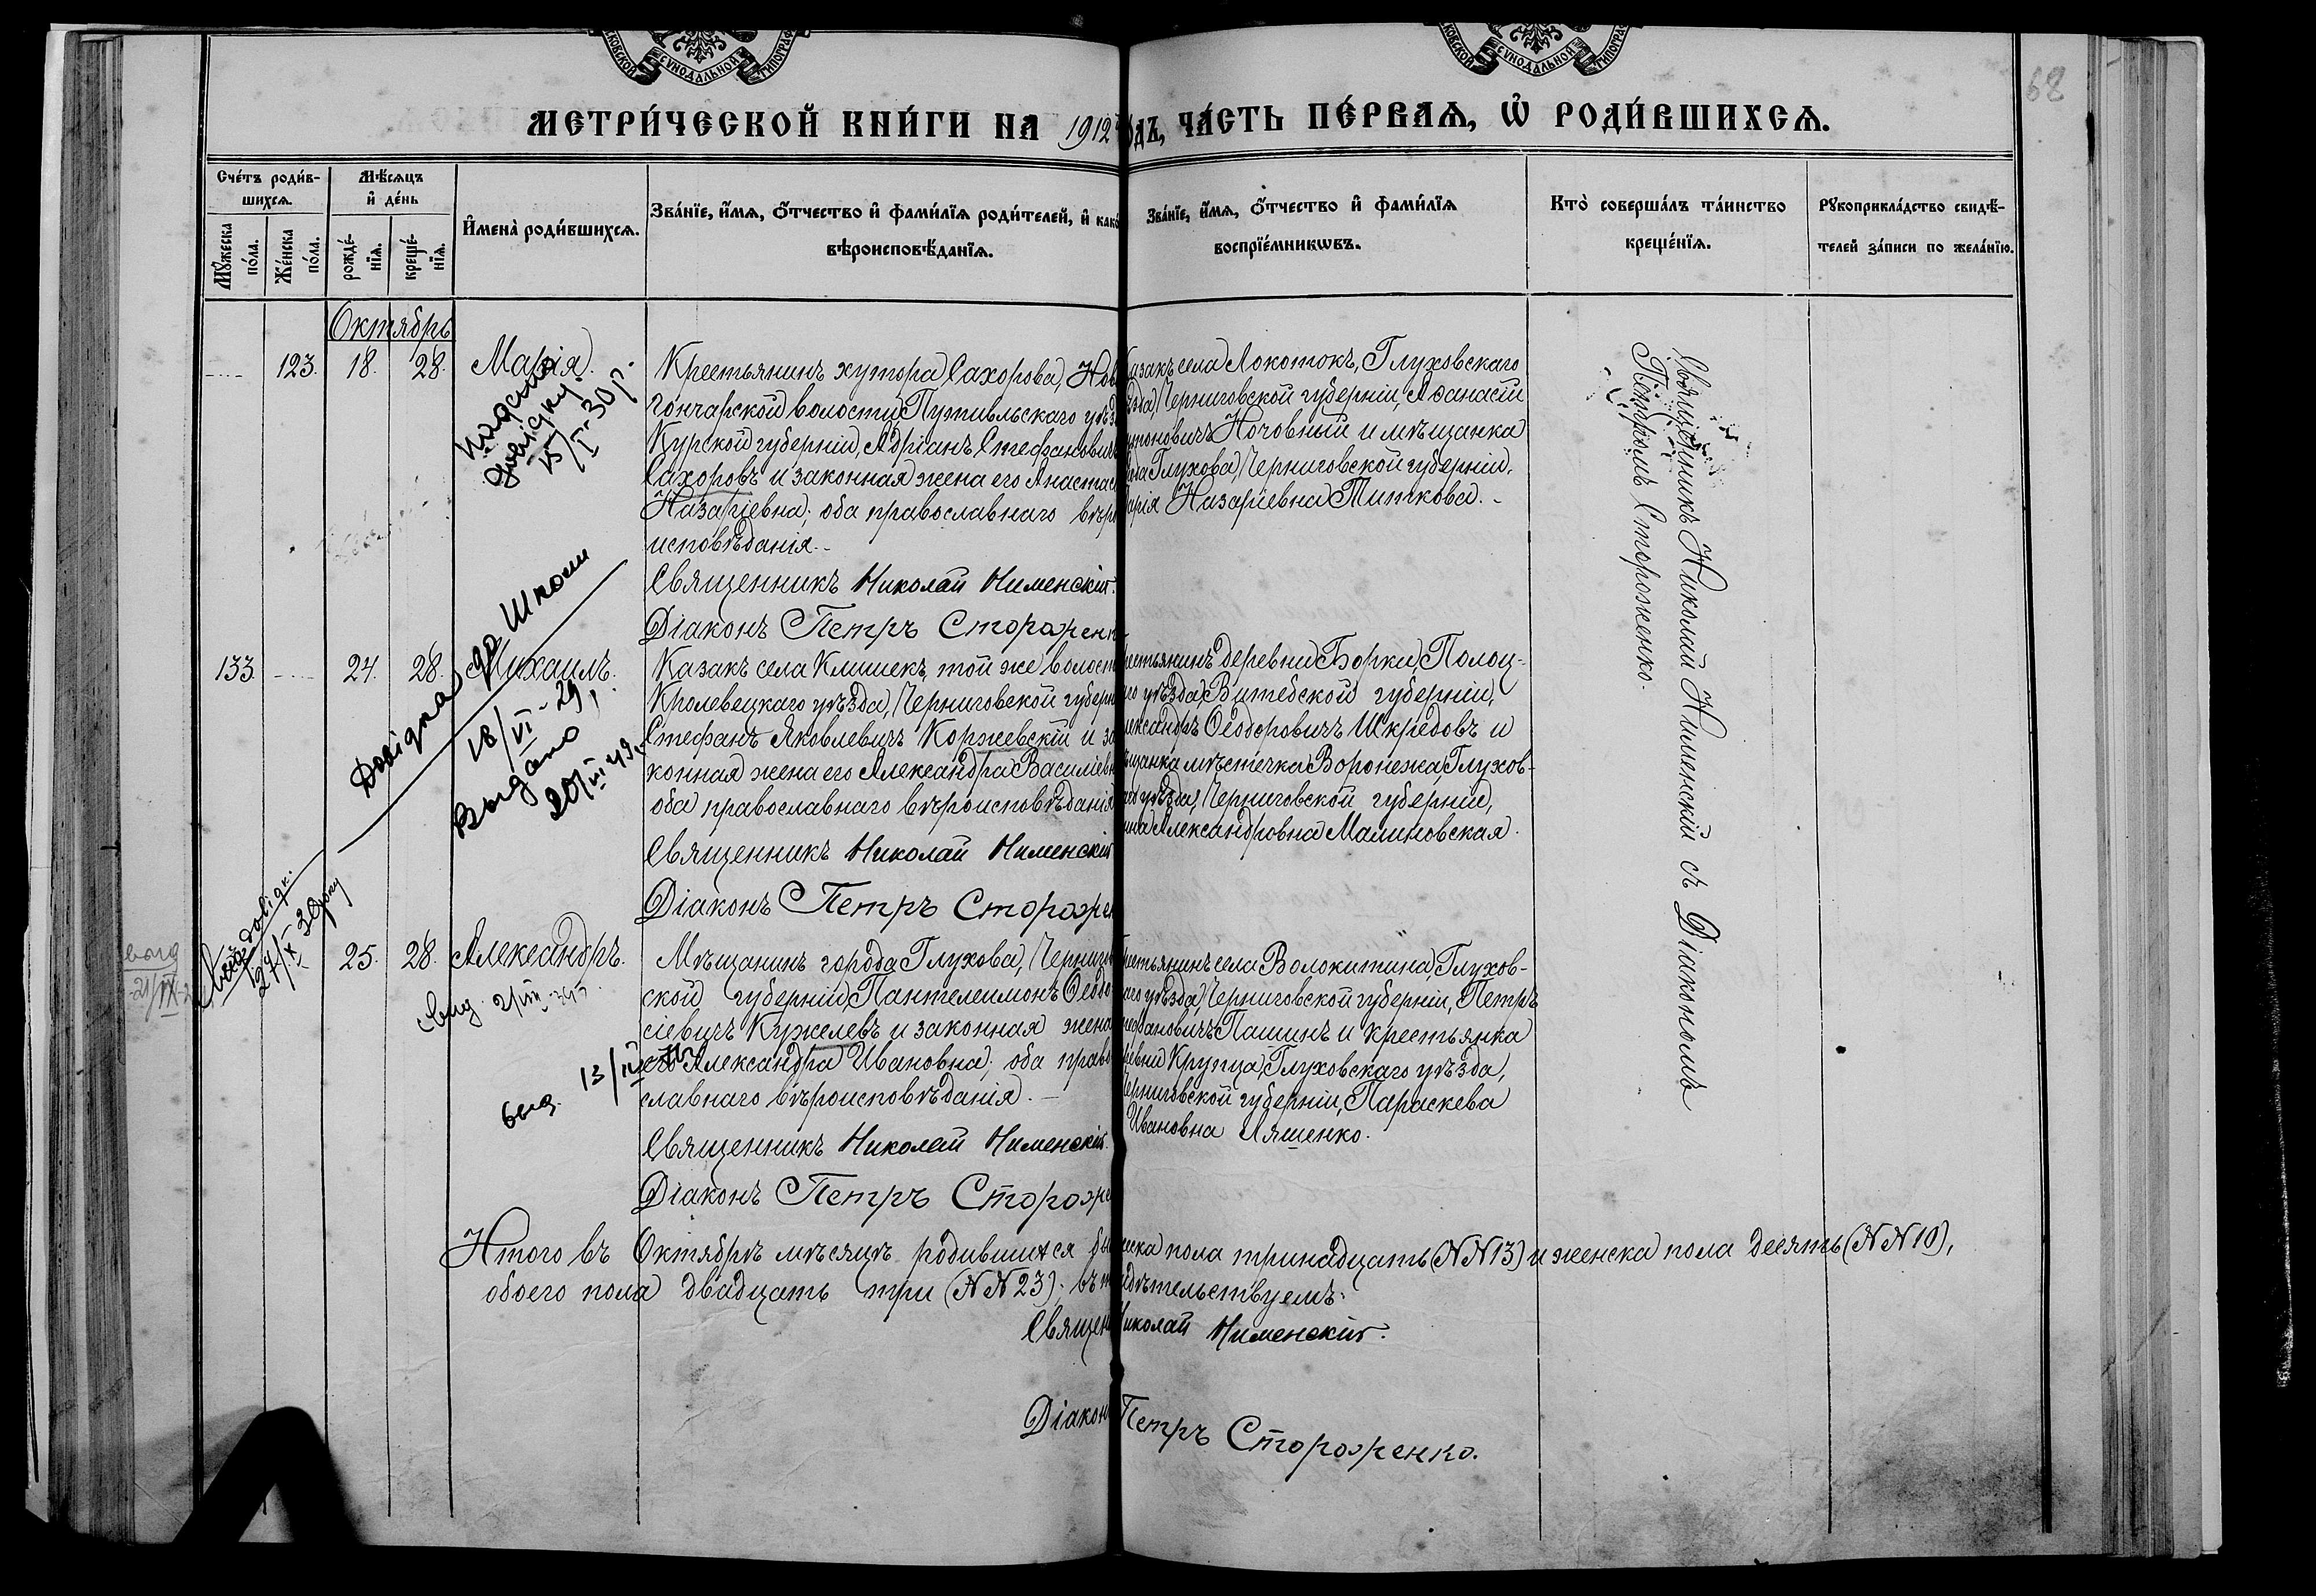 СѴНОДАЛЬНОЙ
СѴНОДАЛЬНОЙ
68
МЕТРИ́ЧЕСКОЙ КНИ́ГИ НА 1912 ОДЪ, ЧА́СТЬ ПЕ́РВАѦ, Ѡ҆ РОДИ́ВШИХСѦ.
Сче́тъ роди́в-
шихсѧ.
Мѣ́сѧцъ
и҆ де́нь
И҆мена̀ роди́вшихсѧ.
Зва́нїе, и҆́мѧ, ѻ҆́тчество и҆ фами́лїѧ роди́телей, и҆ како
вѣроисповѣ́данїѧ.
Зва́нїе, и҆́мѧ, ѻ҆́тчество и҆ фами́лїѧ
воспрїе́мникѡвъ.
Кто̀ соверша́лъ та́инство
креще́нїѧ.
Рꙋкоприкла́дство свидѣ́-
телей за́писи по жела́нїю.
Мꙋ́жеска
по́ла.
Же́нска
по́ла.
рожде́-
нїѧ.
креще́-
нїѧ.
Октябрь
123. 18. 28. Марія.
Крестьянинъ хутора Сахорова, Нов
Гончарской волости, Путивльскаго уѣз
Курской губерніи, Адріанъ Стефанович
Сахоровъ и законная жена его Анастас
Назаріевна; оба православнаго вѣро
исповѣданія.
Священникъ Николай Нименскій.
Діаконъ Петръ Стороженк
Казакъ села Локотокъ, Глуховскаго
ѣзда, Черниговской губерніи, Аѳанасій
тоновичъ Ночовный и мѣщанка
да Глухова, Черниговской губерніи,
арія Назаріевна Титкова.
Священникъ Николай Нименскій съ Діакономъ
Петромъ Стороженко.
довідку
15/I-30 р.
Довідка до Школи
18/VI-29
Выдано
20/III 43
133. 24. 28. Михаилъ.
Казакъ села Клишекъ, той же волост
Кролевецкаго уѣзда, Черниговской губерн
Стефанъ Яковлевичъ Коржевскій и за
конная жена его Александра Василіевн
оба православнаго вѣроисповѣданія
Священникъ Николай Нименскій
Діаконъ Петръ Стороже
рестьянинъ деревни Борки, Полоц-
го уѣзда, Витебской губерніи,
лександръ Ѳеодоровичъ Шкредовъ и
ѣщанка мѣстечка Воронежа, Глухов-
аго уѣзда, Черниговской губерніи,
нна Александровна Малиновская.
довідк.
27/X-30 року
25. 28. Александръ.
Мѣщанинъ города Глухова, Чернигов
ской губерніи, Пантелеимонъ Ѳеодо
сіевичъ Кужелевъ и законная жена
его Александра Ивановна; оба право
славнаго вѣроисповѣданія.
Священникъ Николай Нименскій.
Діаконъ Петръ Стороже
рестьянинъ села Волокитина, Глухов-
аго уѣзда, Черниговской губерніи, Петръ
тефановичъ Пашинъ и крестьянка
ревни Крупца, Глуховскаго уѣзда,
Черниговской губерніи, Параскева
Ивановна Ляшенко.
выд
выд. 13/IV
Итого въ Октябрѣ мѣсяцѣ родившихся бы
еска пола тринадцать (NN 13) и женска пола десять (NN 10),
обоего пола двадцать три (NN 23); въ т
идѣтельствуемъ:
Священ
Николай Нименскій.
Діакон
Петръ Стороженко.